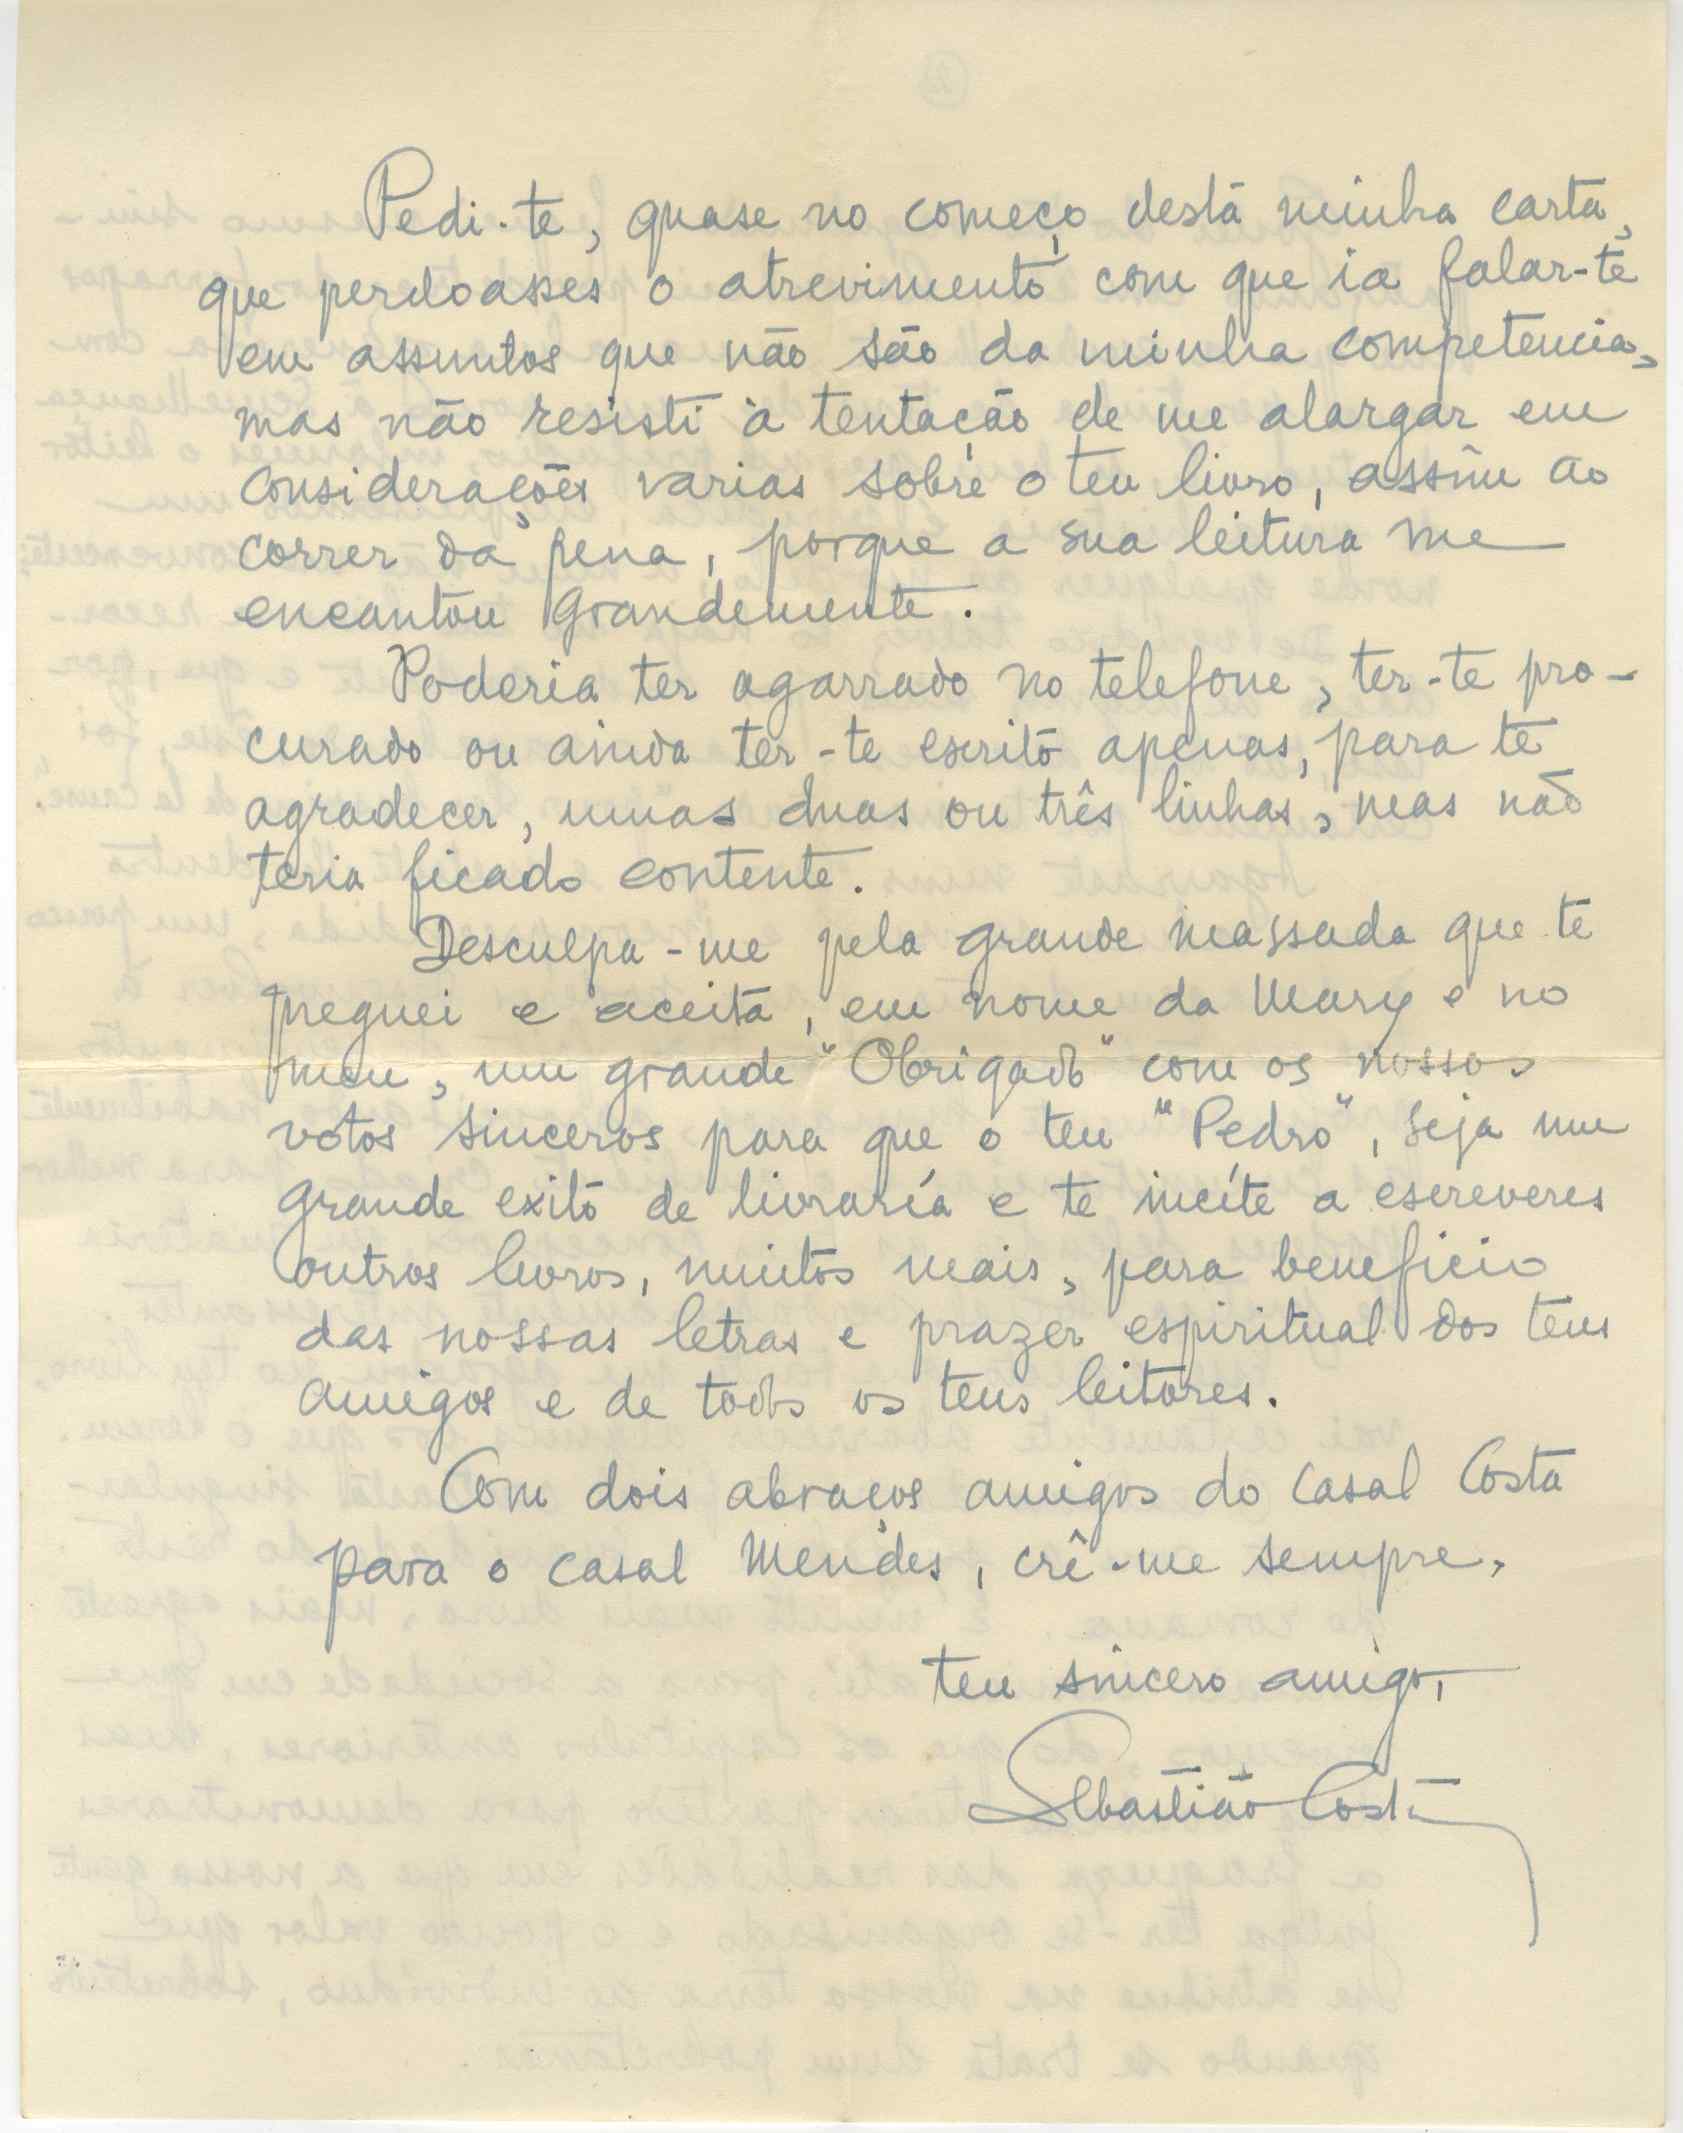 Pedi-te, quase no começo desta minha carta,
que perdoasses o atrevimento com que ia falar-te
em assuntos que não são da minha competencia,
mas não resisti à tentação de me alargar em
considerações varias sobre o teu livro, assim ao
correr da pena, porque a sua leitura me
encantou grandemente.
Poderia ter agarrado no telefone, ter-te pro-
curado ou ainda ter-te escrito apenas, para te
agradecer, umas duas ou três linhas, mas não
teria ficado contente.
Desculpa-me pela grande massada que te
preguei e aceita, em nome da Mary e no
meu, um grande "Obrigado" com os nossos
votos sinceros para que o teu "Pedro", seja um
grande exito de livraría e te incíte a escreveres
outros livros, muitos mais, para beneficio
das nossas letras e prazer espiritual dos teus
amigos e de todos os teus leitores.
Com dois abraços amigos do casal Costa
para o casal Mendes, crê-me sempre,
teu sincero amigo,
Sebastião Costa